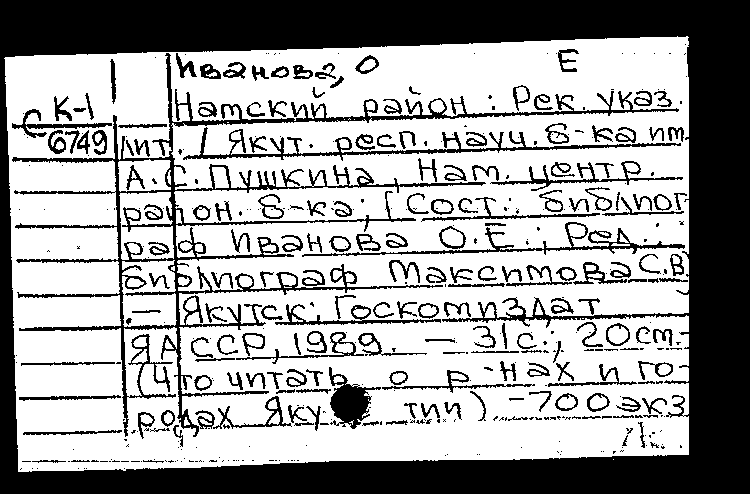 Иванова, О Е
К-1 Намский район : Рек. указ.
С 6749 лит. / Якут. респ. науч. б-ка им.
А.С. Пушкина, Нам. центр.
район. б-ка; [Сост.: библиог
раф Иванова О.Е.; Ред.:
библиограф Максимова С.В]
. — Якутск: Госкомиздат
ЯАССР, 1989. — 31с.; 20см.-
(Что читать о р-нах и го-
родах Якутии) -700экз